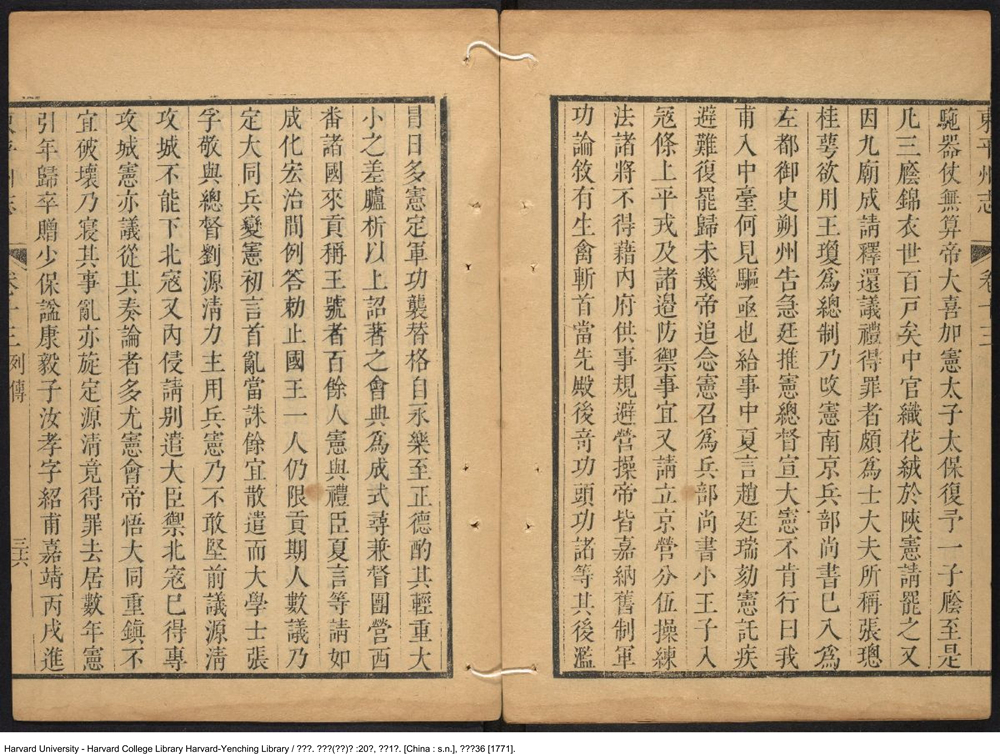 東平州志
卷十三
駞器仗無算帝大喜加憲太子太保復予一子廕至是
凡三廕錦衣世百戸矣中官織花絨於陜憲請罷之又
因九廟成請釋還議禮得罪者頗爲士大夫所稱張璁
桂萼欲用王瓊爲總制乃改憲南京兵部尚書已入爲
左都御史朔州告急廷推憲總督宣大憲不肯行曰我
甫入中臺何見驅亟也給事中夏言趙廷瑞劾憲託疾
避難復罷歸未幾帝追念憲召爲兵部尚書小王子入
冦條上平戎及諸邉防禦事宜又請立京營分伍操練
法諸將不得藉內府供事規避營操帝皆嘉納舊制軍
功論敘有生禽斬首當先殿後竒功頭功諸等其後濫
冒日多憲定軍功襲替格自永樂至正德酌其輕重大
小之差臚析以上詔著之會典為成式尋兼督團營西
畨諸國來貢稱王號者百餘人憲與禮臣夏言等請如
成化宏治間例答勅止國王一人仍限貢期人數議乃
定大同兵變憲初言首亂當誅餘宜散遣而大學士張
孚敬與總督劉源清力主用兵憲乃不敢堅前議源清
攻城不能下北冦又內侵請別遣大臣禦北冦已得專
攻城憲亦議從其奏論者多尤憲會帝悟大同重鎮不
宜破壞乃寢其事亂亦旋定源清竟得罪去居數年憲
引年歸卒贈少保諡康毅子汝孝字紹甫嘉靖丙戌進
卷十三 列傳
三六
Harvard University - Harvard College Library Harvard-Yenching Library / ???. ???(??)? :20?, ??1?. [China : s.n.], ???36 [1771].